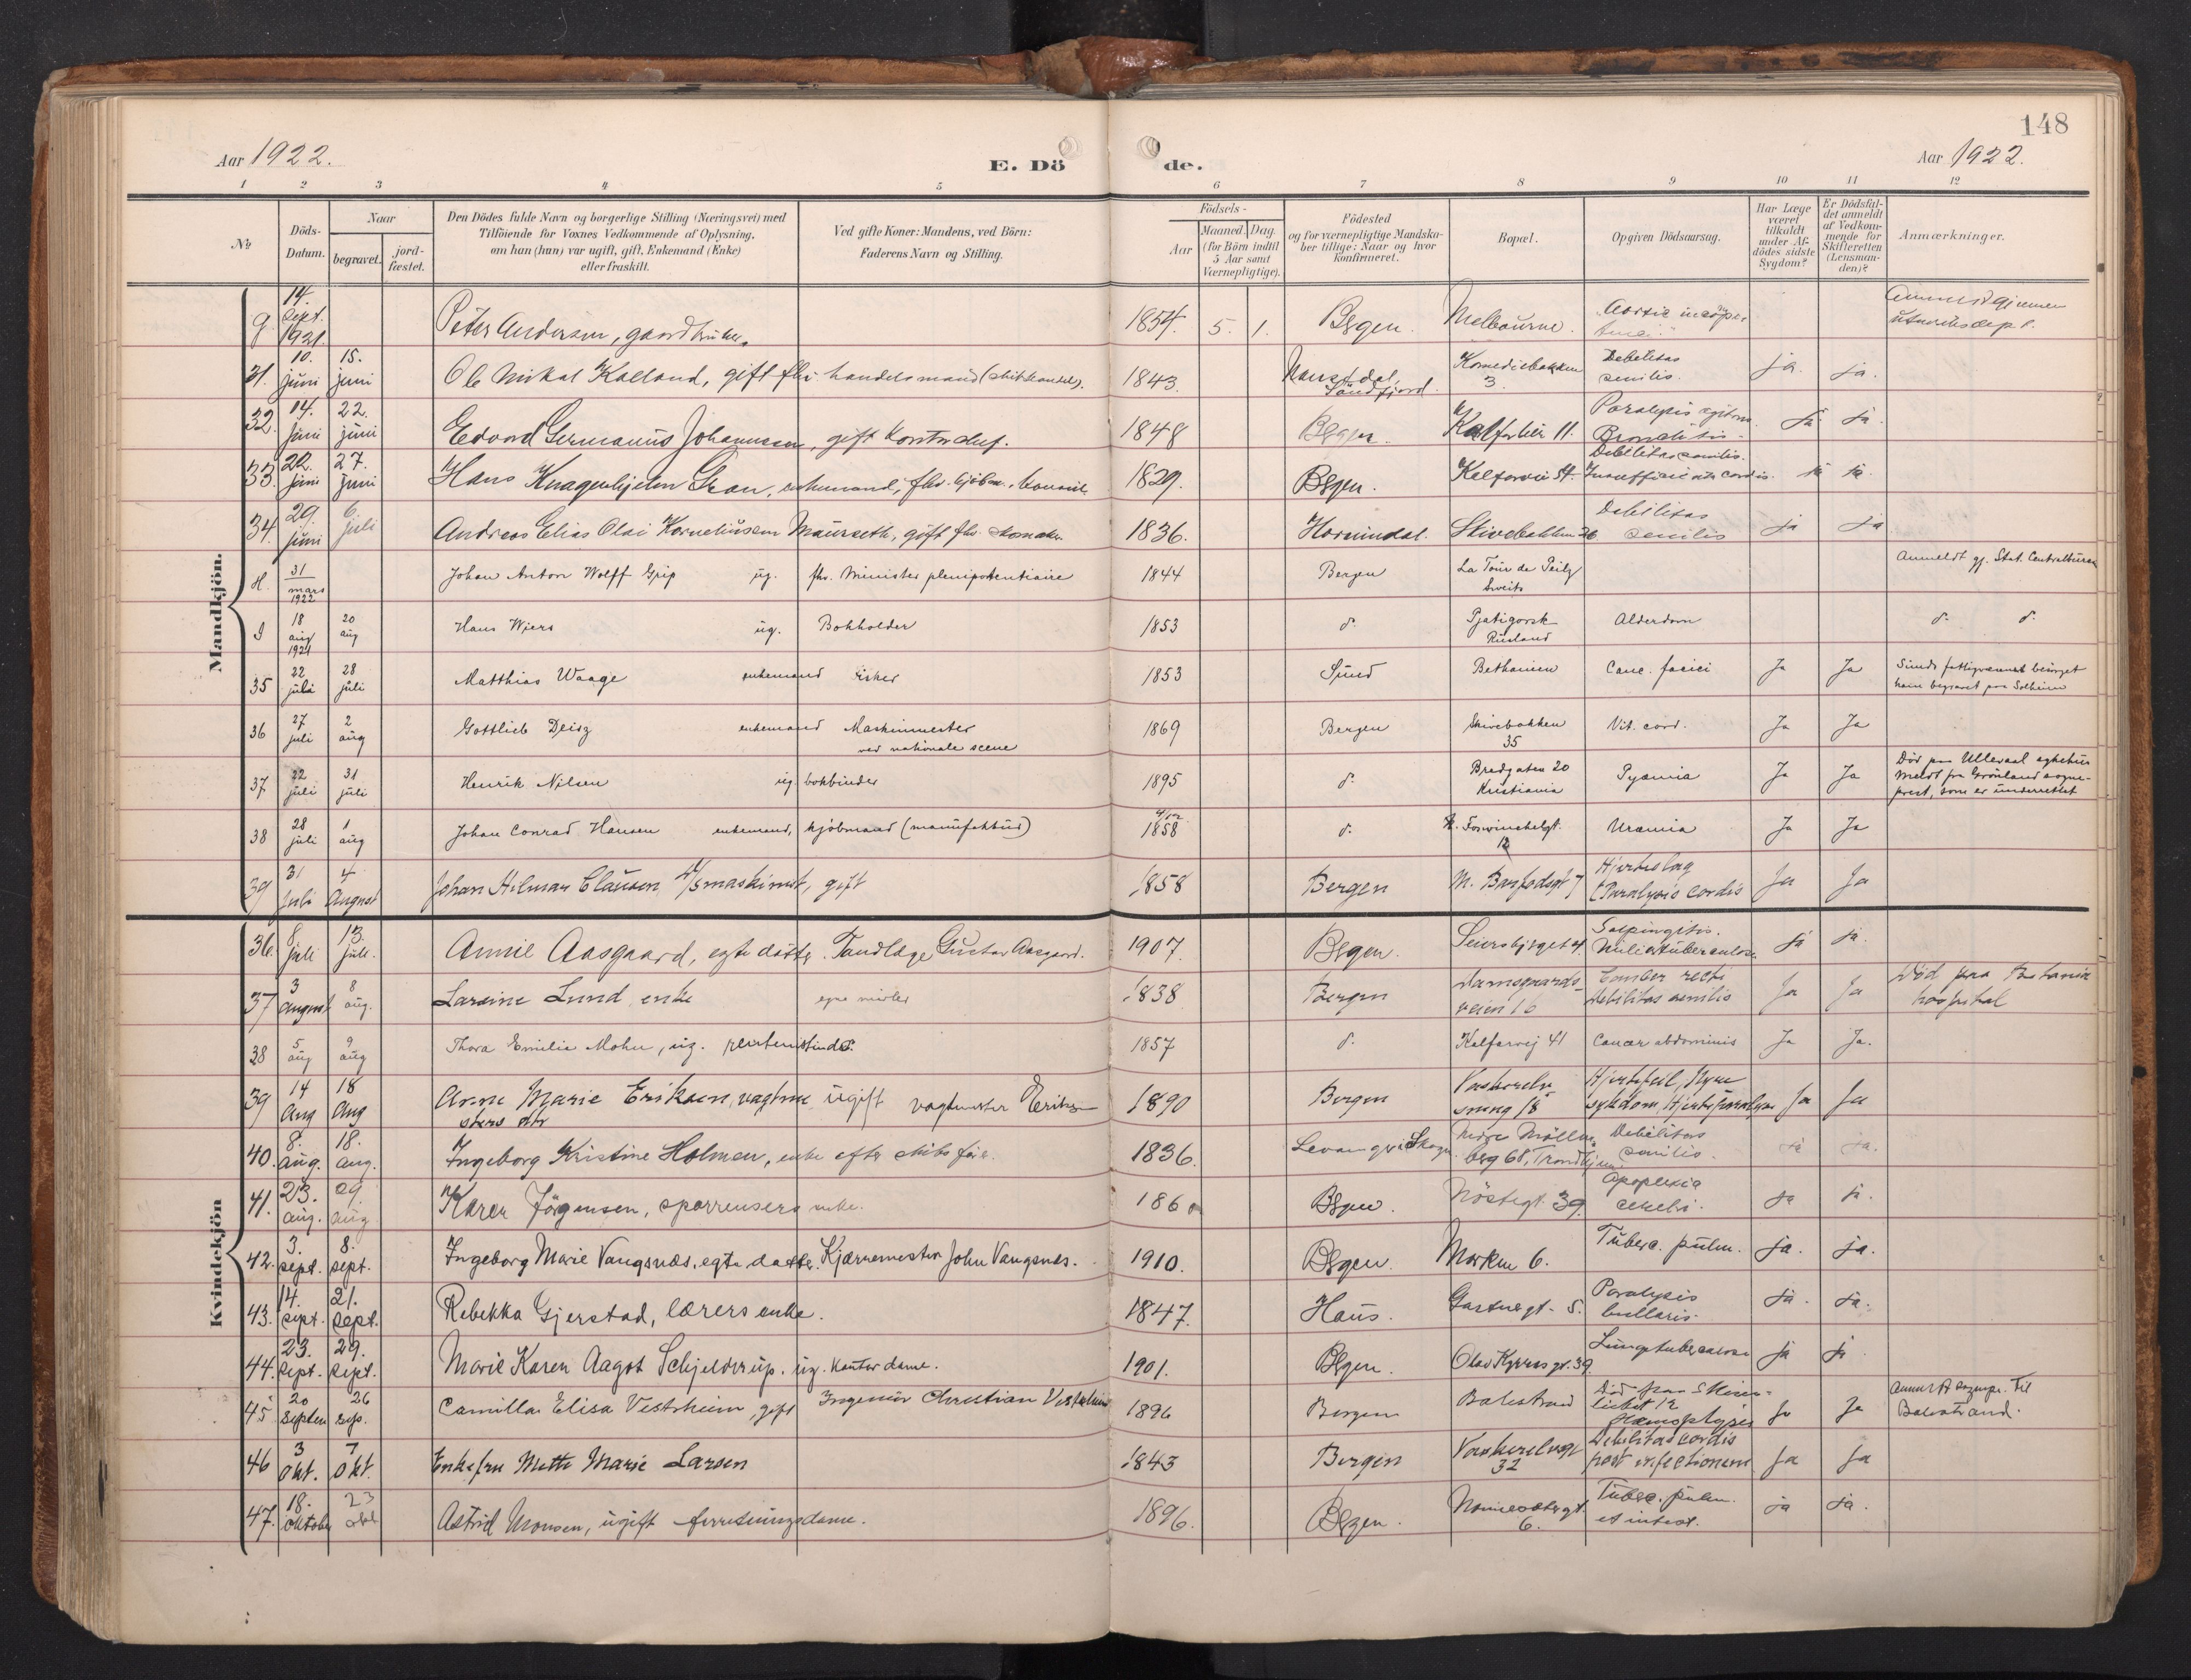 148
Aar 1922. E. Dö de. Aar 1922.
1 2 3 4 5 6 7 8 9 10 11 12
№
Döds-Datum.
Naar
begravet.
jord-fæstet.
Den Dödes fulde Navn og borgerlige Stilling (Næringsvei) med
Tilföiende for Voxnes Vedkommende af Oplysning,
om han (hun) var ugift, gift, Enkemand (Enke)
eller fraskilt.
Ved gifte Koner: Mandens, ved Börn:
Faderens Navn og Stilling.
Födsels-
Aar
Maaned. Dag.
(for Börn indtil
5 Aar samt
Værnepligtige).
Födested
og for værnepligtige Mandska-
ber tillige: Naar og hvor
konfirmeret.
Bopæl.
Opgiven Dödsaarsag.
Har Læge
været
tilkaldt
under Af-
dödes sidste
Sygdom?
Er Dödsfal-
det anmeldt
af Vedkom-
mende for
Skifteretten
(Lensman-
den)?
Anmærkninger.
Mandkjön.
9. 14. sept. 1921. Peter Andersen, gaardbruker. 1854. 5. 1. Bergen. Melbourne. Aortic
31. 10. juni 15. juni Ole Mikal Kalland, gift fhv. handelsmand 1843. Söndfjord. Komediebakken 3. Debilitas senilis. ja. ja.
32. 14. juni 22. juni Edvard Germanus Johannessen, gift kontorchef. 1848 Bergen. Kalfarlien 11. Paralysis agitans. Bronchitis. ja ja.
33. 22. juni 27. juni Hans Knagenhjelm Gran, enkemand, fhv. kjöbm., konsul. 1829. Bergen. Kalfarvei 54. Debilitas senilis. Insufficientia cordis. ja ja.
34. 29. juni 6. juli Andreas Elias Olai Korneliussen Maurseth, gift fhv. skomaker. 1836. Hornindal. Skivebakken 26 Debilitas senilis ja ja
H. 31 mars 1922 Johan Anton Wolff Grip ug. fhv. Minister plenipotentiaire 1844 Bergen La Tour de Peilz Sweits Anmeldt gj. Stat. Centralbureau
I 18 aug 1921 20 aug Hans Wiers ug. Bokholder 1853 d. Pjatigorsk Rusland Alderdom d. d.
35 22 juli 28 juli Matthias Waage enkemand fisker 1853 Sund Bethanien Canc. faciei Ja Ja Sunds fattigvæsenet besörget ham begravet paa Solheim
36 27 juli 2 aug Gottlieb Deisz enkemand Maskinmester ved nationale scene 1869 Bergen Skivebakken 35 Vit. cord. Ja Ja
37 22 juli 31 juli Henrik Nilsen ug bokbinder 1895 d. Bredgaten 20 Kristiania Pyæmia Ja Ja Död paa Ullevaal sykehus meldt fra Grönland sogne-prest, som er underrettet
38 28 juli 1 aug Johan Conrad Hansen enkemand, kjöbmand (manufaktur) 1858 d. 12 Uræmia Ja Ja
39 31 Juli 4 August Johan Hilmar Clausen maskinist, gift 1858 Bergen 7 Hjerteslag (Paralysis cordis Ja Ja
Kvindekjön
36. 8 juli 13. juli. Annie Aasgaard, egte datter. Tandlæge Gustav Aasgaard. 1907. Bergen. Seiersbjerget 4. Salpingitis. Miliærtuberculose ja ja.
37 3 august 8 aug. Larsine Lund enke egne midler 1838 Bergen Damsgaards-veien 16 Debilitas senilis Ja Ja Död paa Betania hospital
38 5 aug 9 aug Thora Emilie Mohn, ug. 1857 d. Kalfarvej 41 Cancer abdominis Ja Ja.
39 14 Aug 18 Aug Anne Marie Eriksen, vagtme sters dtr ugift vagtmester Eriksen 1890 Bergen Vaskerelv smug 18 Hjertefeil, Nyre sykdom, Hjerteparalyse Ja Ja
40. 8. aug. 18. aug. Ingeborg Kristine Holmen, enke efter skibsför. 1836. Levanger Skogn. Möllen berg 68, Trondhjem Debilitas senilis. ja ja.
41. 23. aug. 29. aug. Karen Jörgensen, sparrensers enke. 1860 Bergen. Nöstegt. 39. Apoplexia cerebri. ja ja.
42. 3. sept. 8. sept. Ingeborg Marie Vangsnæs, egte datter. Kjærnemester John Vangsnæs. 1910. Bergen. Marken 6. Tuberc. pulm. ja. ja.
43. 14. sept. 21. sept. Rebekka Gjerstad, lærers enke. 1847. Haus. Gartnergt. 5. Paralysis bulbaris. ja. ja.
44. 23. sept. 29. sept. Marie Karen Aagot Schjelderup. ug. kontordame. 1901. Bergen. Olav Kyrres gt. 39. Lungetuberculose ja ja.
45 20 septem 26 sep. Camilla Elisa Vestrheim, gift Ingeniör Christian Vestrheim 1896 Bergen Balestrand Död Hæmoptysis Ja Ja Anmeldt sognepr. til Balestrand.
46 3 okt. 7 okt. Enkefru Mette Marie Larsen 1843 Bergen Vaskerelvsgt 32 Debilitas cordis post infectionem Ja Ja
47. 18. oktober 23 okt Astrid Monsen, ugift forretningsdame. 1896. Bergen. 6. Tuberc. pulm. et intest. ja ja.